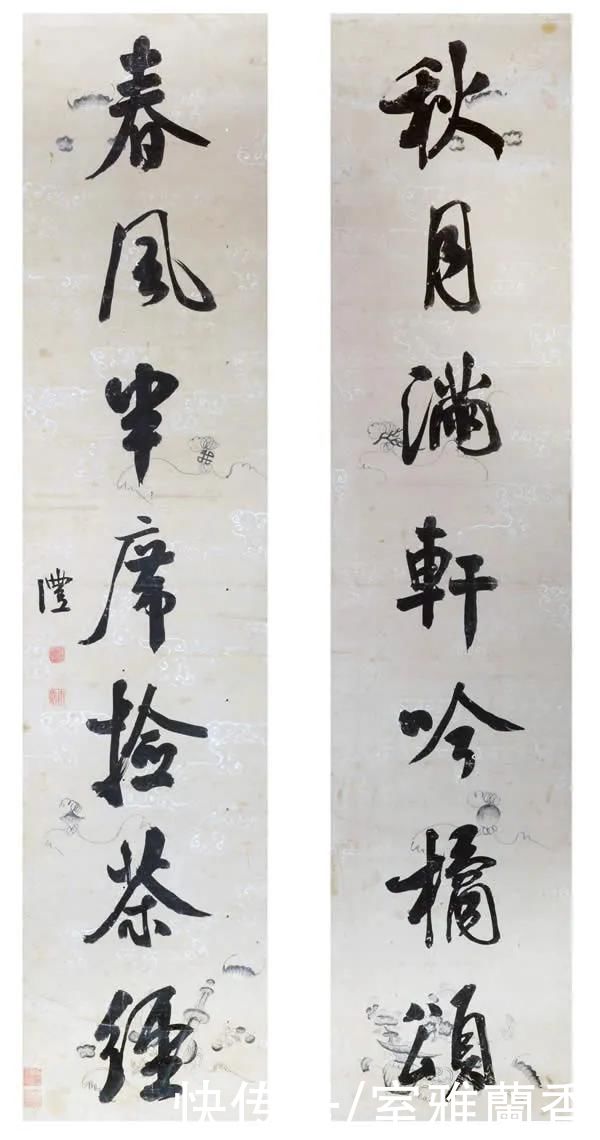 秋月满軒吟橘頌
春風半席撿茶經
澧
快传号/室雅蘭香